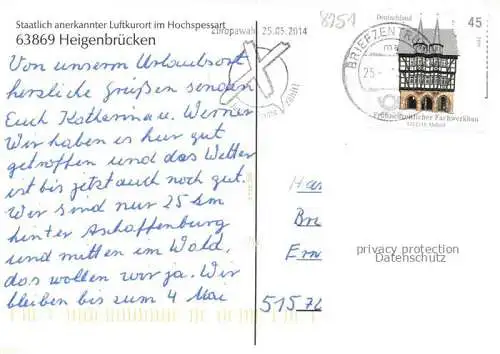 Staatlich anerkannter Luftkurort im Hochspessart
63869 Heigenbrücken
Von unserm Urlaubsort
herzliche Grüßen senden
Euch Katharina u. Werner
Wir haben es hier gut
getroffen und das Wetter
ist bis jetzt auch noch gut.
Wir sind nur 25 km
hinter Aschaffenburg
und mitten im Wald,
das wollen wir ja. Wir
bleiben bis zum 4 Mai
Europawahl 25.05.2014
8951
Deutschland
45
BRIEFZENTRUM
25.
Frühneuzeitlicher Fachwerkbau
Ha
Br
Er
51576
privacy protection
Datenschutz